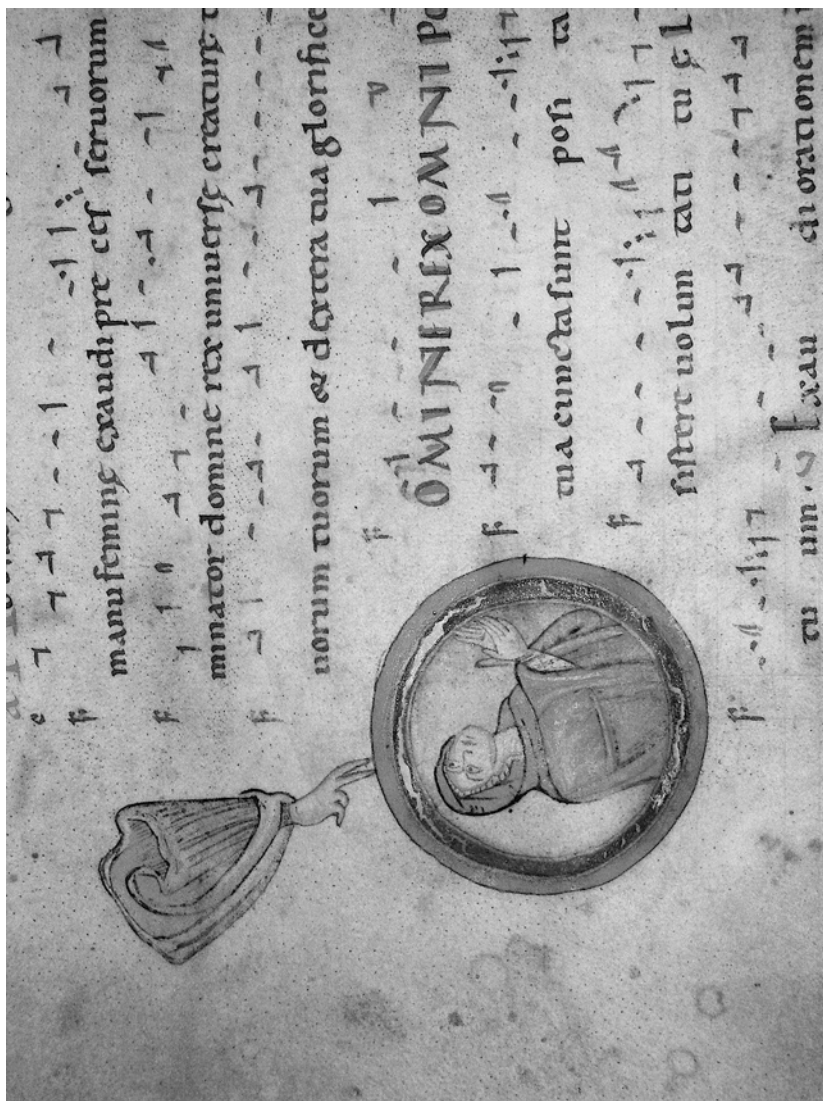 manu feminę exaudi pre ces seruorum
minator domine rex uniuersę creaturę
uorum tuorum & dextera tua glorifice
OMINE REX OMNIPO
tua cuncta sunt posi ta
sistere uolun tati tu ę
tu um. Exau di orationem